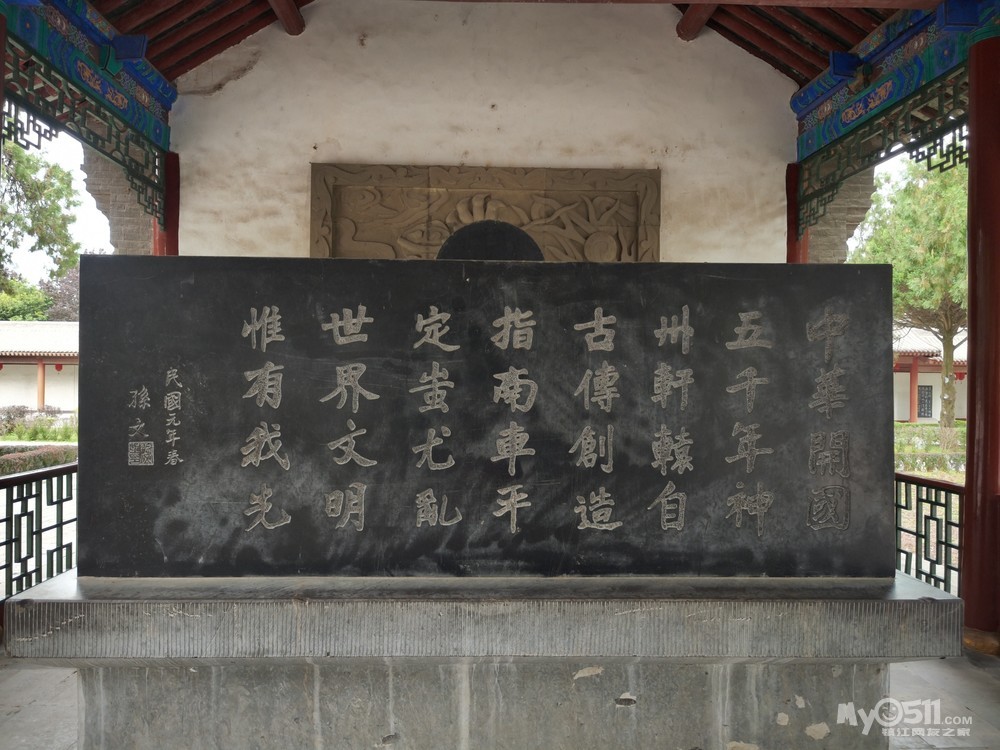 中華開國
五千年神
州軒轅自
古傳創造
指南車平
定蚩尤亂
世界文明
惟有我先
民國元年春
孫文
My0511.COM
镇江网友之家